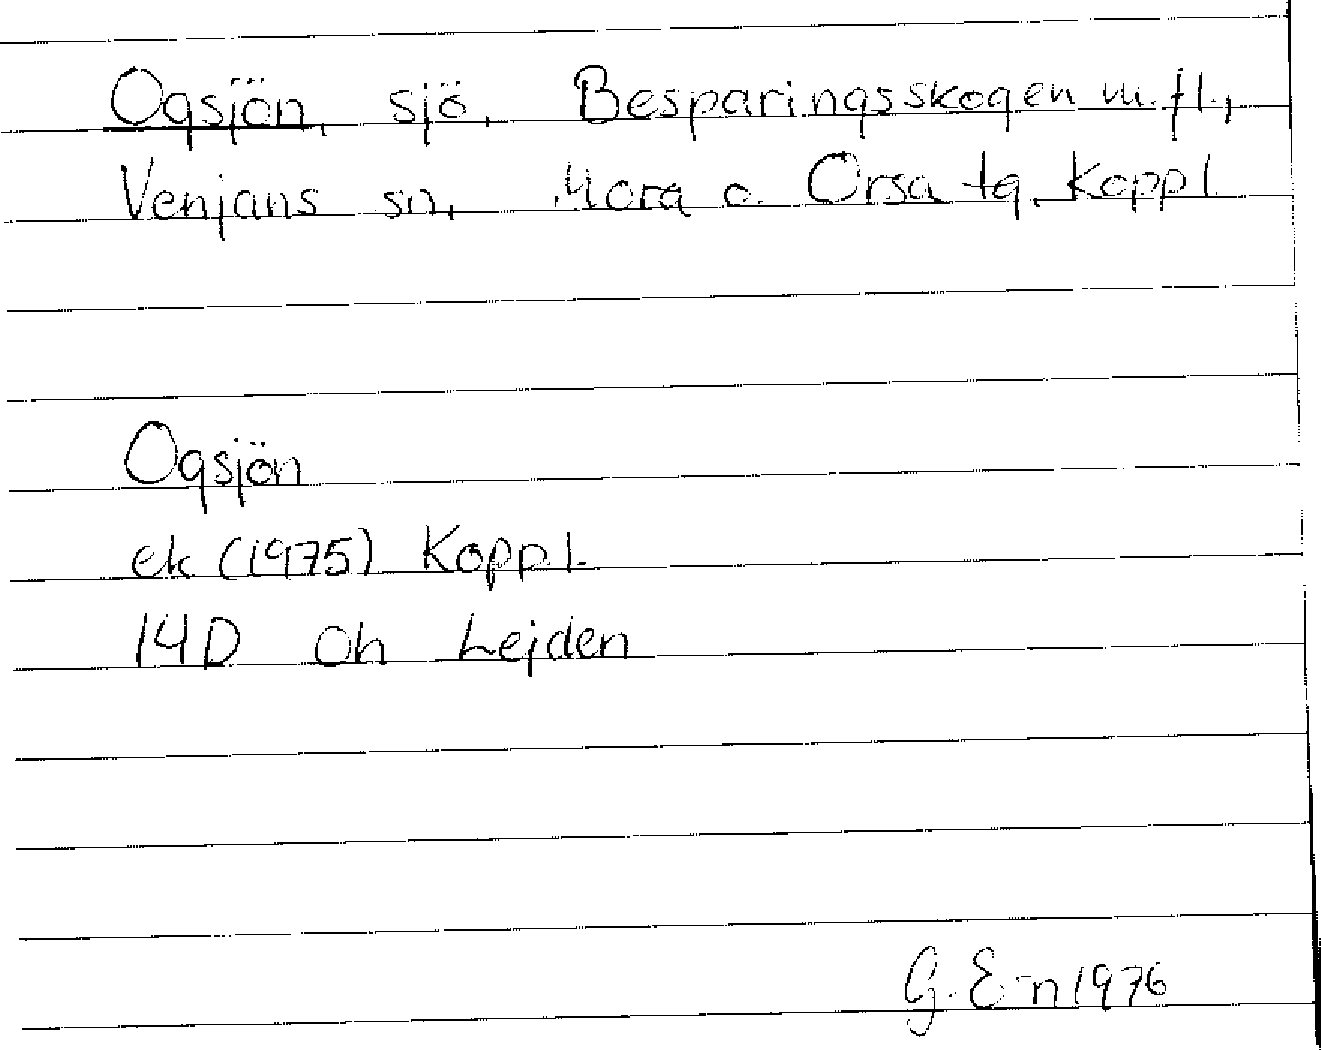 Ogsjön, sjö, Besparingsskogen m.fl.,
Venjans sn, Mora o. Orsa tg, Koppl.
Ogsjön
ek (1975) Koppl.
14D Oh Lejden
G. E-n 1976